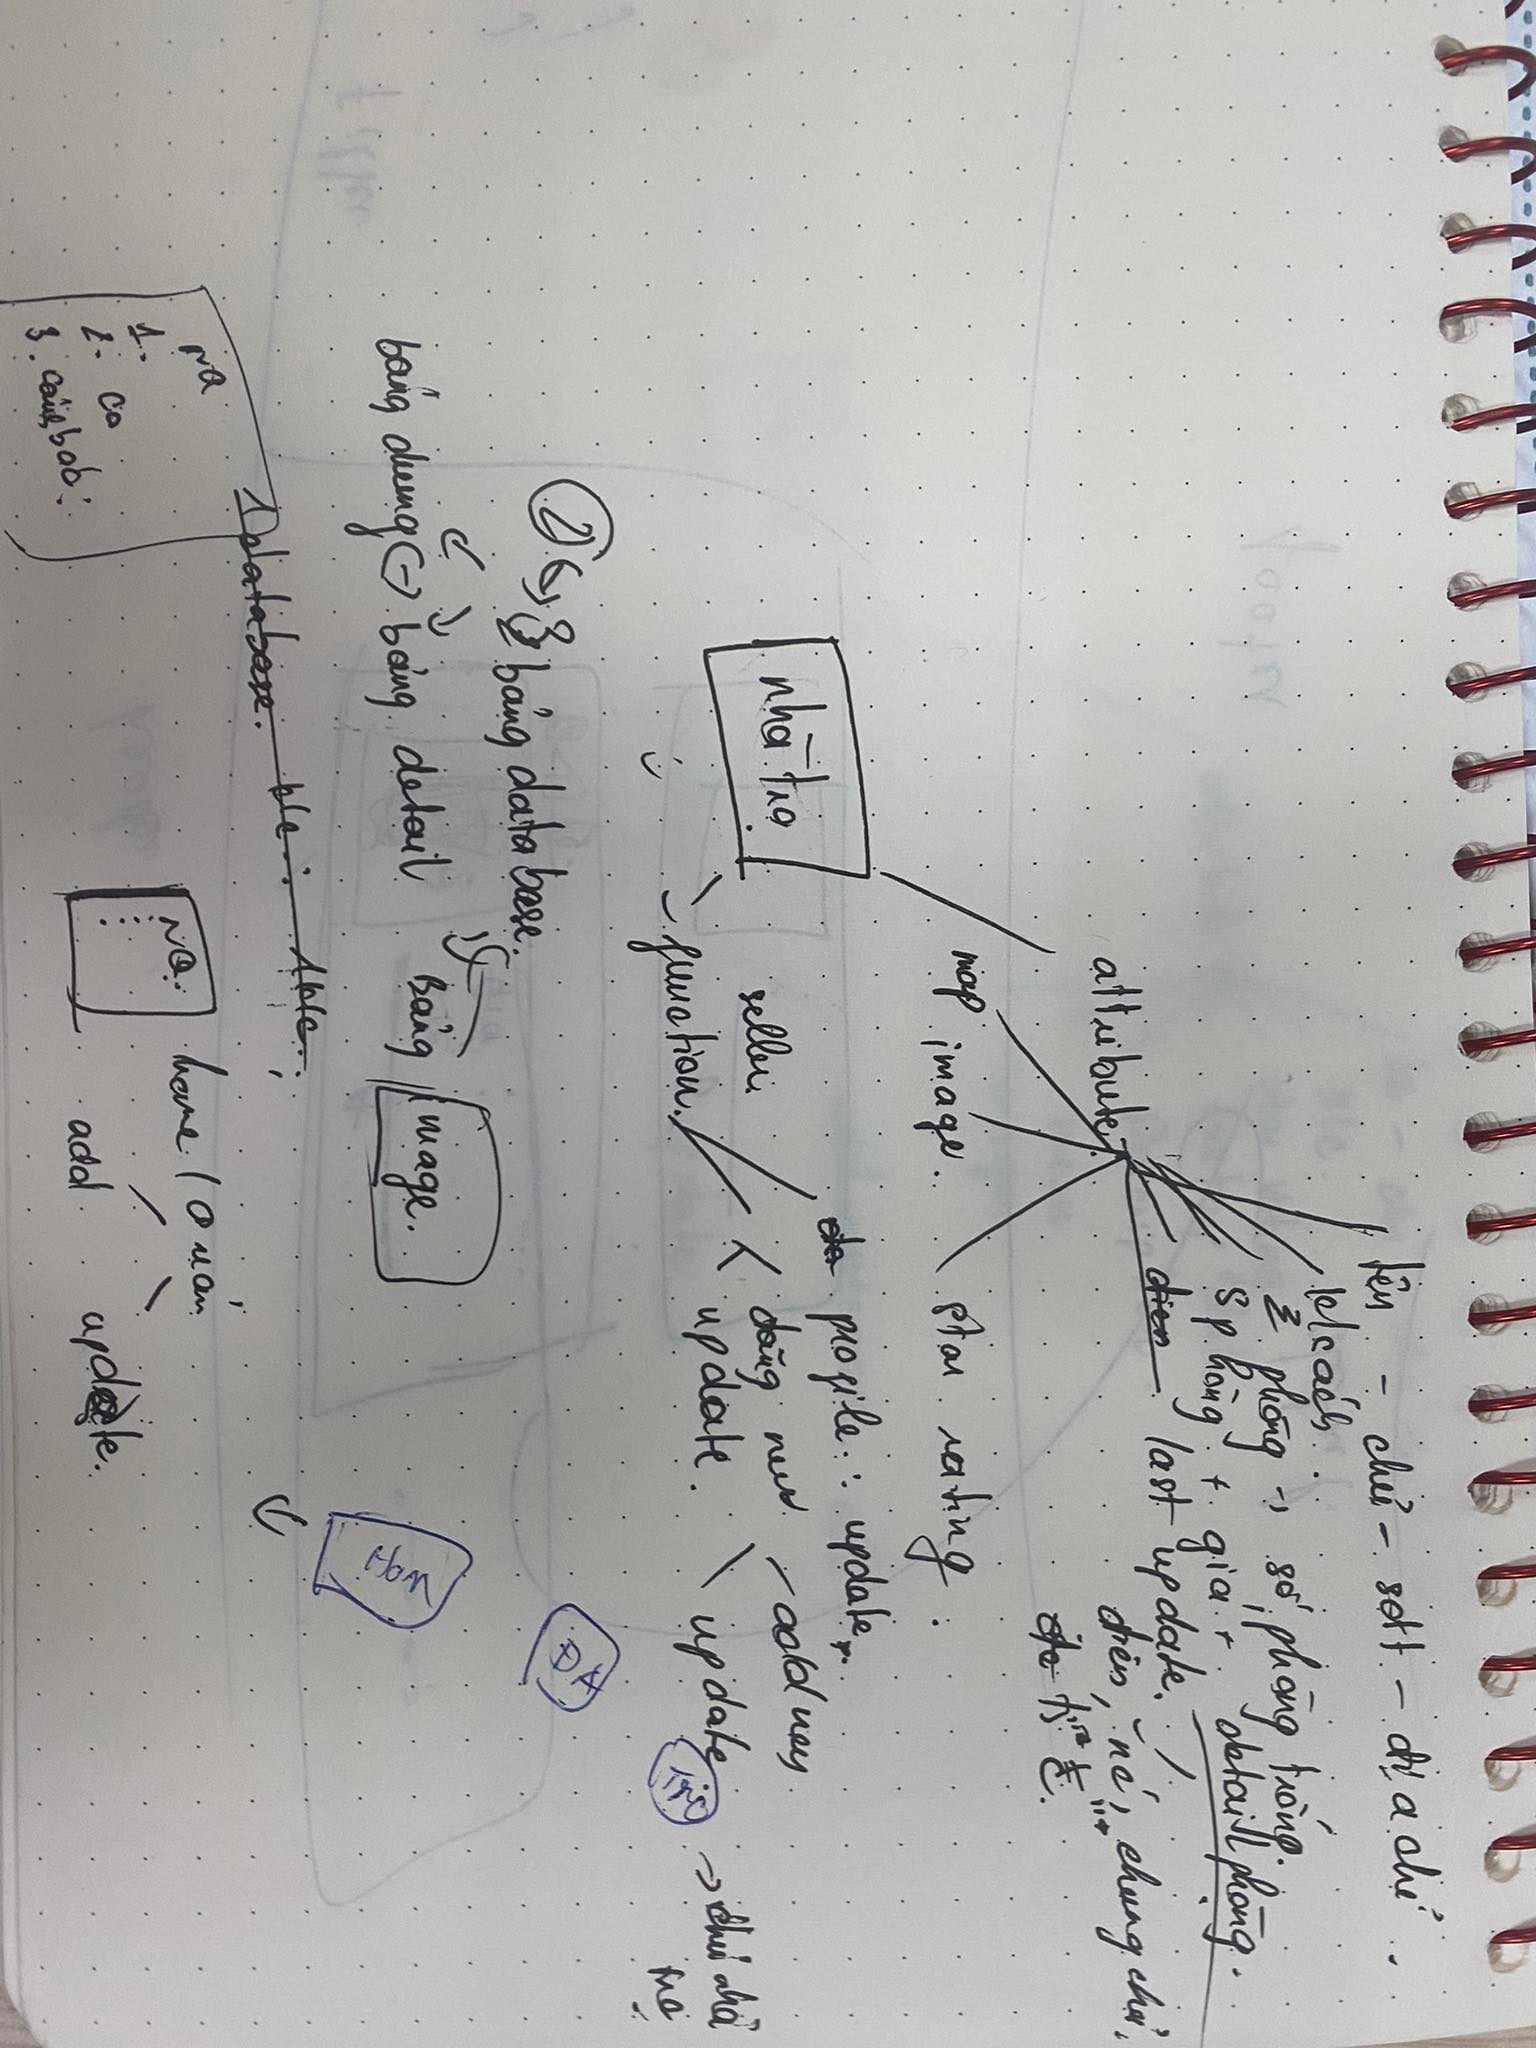 tên - chủ - sđt - địa chỉ.
k/cách.
Σ phòng → số phòng trống.
Sphòng + giá + detail phòng.
last update.
điện, nc, chung chủ,
attribute.
map
image.
star rating.
nhà trọ
profile: update.
seller.
function.
đăng new
update.
add new
update
Trí → chủ nhà
trọ
ĐA
2
3 bảng database.
bảng chung ↔ bảng detail
Bảng image.
Hoan
1 database.
NQ
1.
2. Co
3.
NQ.
home / quán
add
update.